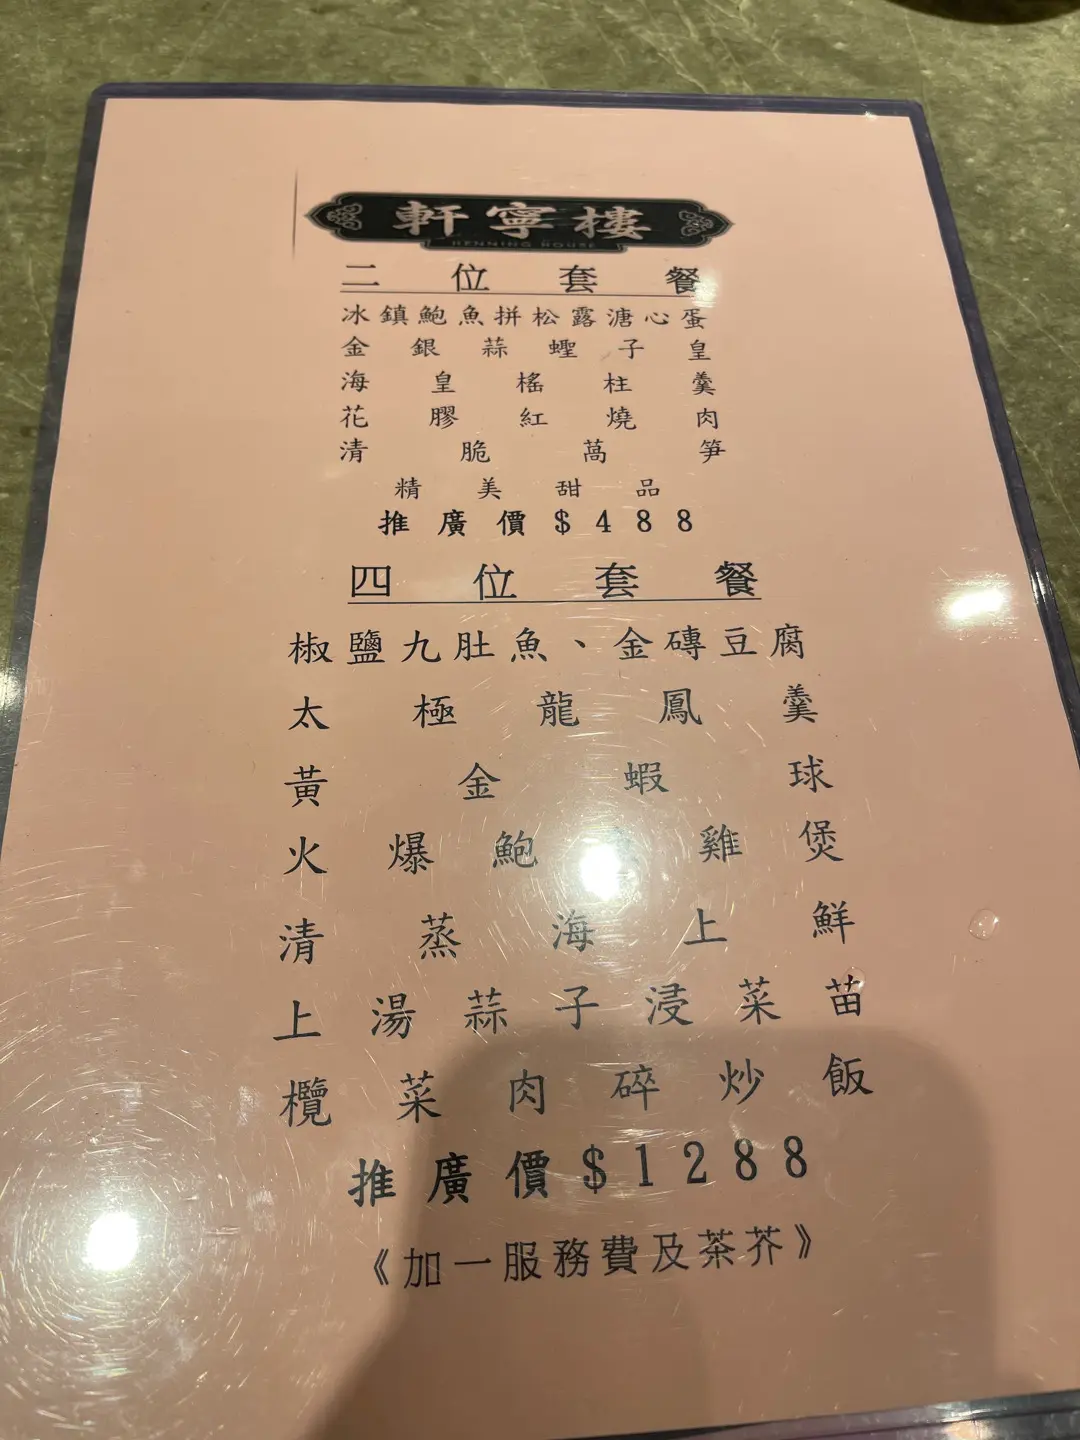 軒寧樓
HENNING HOUSE
二位套餐
冰鎮鮑魚拼松露溏心蛋
金銀蒜蟶子皇
海皇榣柱羹
花膠紅燒肉
清脆萵笋
精美甜品
推廣價$488
四位套餐
椒鹽九肚魚、金磚豆腐
太極龍鳳羹
黃金蝦球
火爆鮑雞煲
清蒸海上鮮
上湯蒜子浸菜苗
欖菜肉碎炒飯
推廣價$1288
《加一服務費及茶芥》